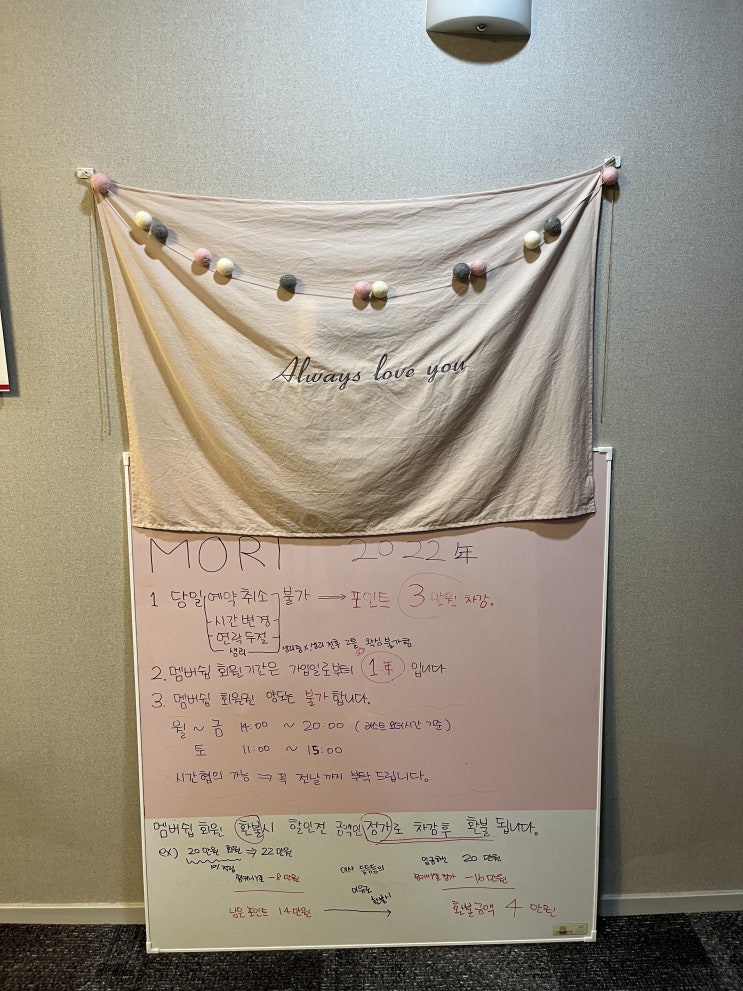 Always love you
MORI 2022年
1 당일 예약 취소 불가 ⟹ 포인트 3만원 차감.
시간변경
연락두절
생리
2. 멤버쉽 회원기간은 가입일로부터 1年 입니다
3. 멤버쉽 회원권 양도는 불가합니다.
월 ~ 금 14:00 ~ 20:00 (라스트 오더시간 기준)
토 11:00 ~ 15:00
시간협의 가능 ⇒ 꼭 전날까지 부탁드립니다.
멤버쉽 회원 환불시 할인전 금액인 정가로 차감후 환불 됩니다.
ex) 20만원 회원 ⇒ 22만원
10% 적립
-8만원
남은 포인트 14만원
입금하신 20만원
-16만원
환불금액 4만원